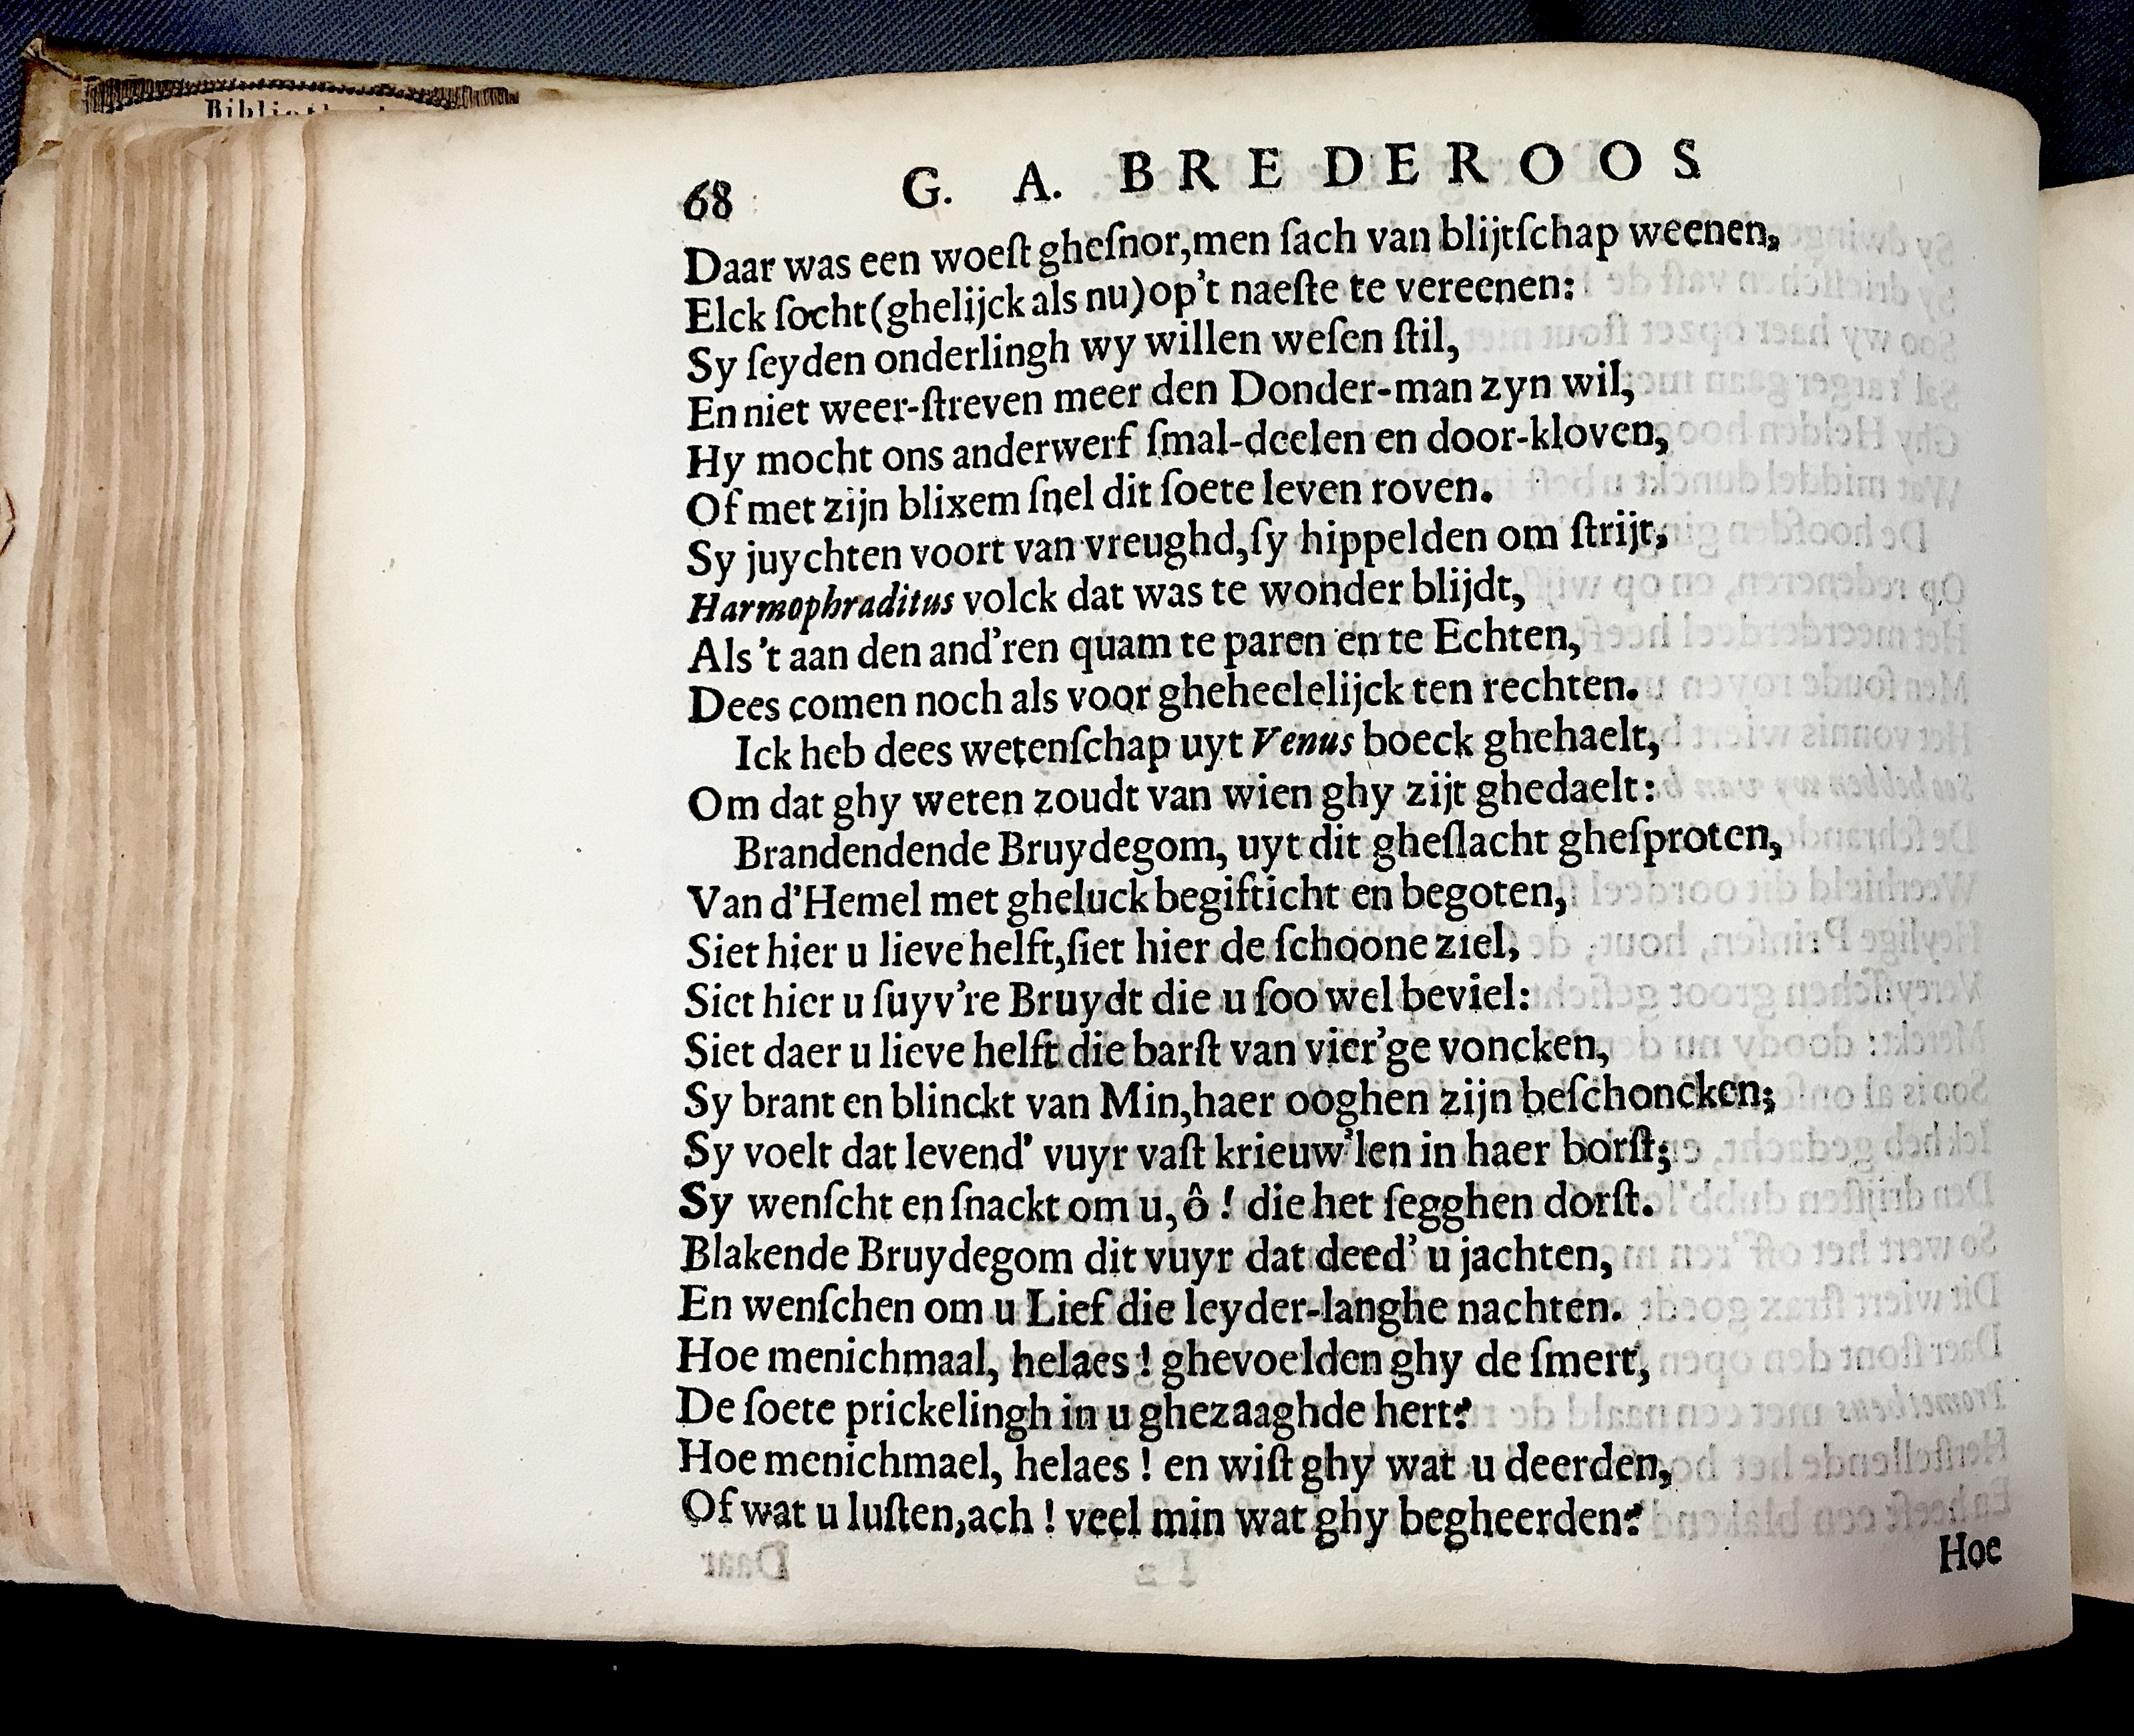 68 G. A. BREDEROOS
Daar was een woeſt gheſnor,men ſach van blijtſchap weenen,
Elck ſocht(ghelijck als nu)op't naeſte te vereenen:
Sy ſeyden onderlingh wy willen weſen ſtil,
En niet weer-ſtreven meer den Donder-man zyn wil,
Hy mocht ons anderwerf ſmal-deelen en door-kloven,
Of met zijn blixem ſnel dit ſoete leven roven.
Sy juychten voort van vreughd,ſy hippelden om ſtrijt,
Harmophraditus volck dat was te wonder blijdt,
Als 't aan den and'ren quam te paren en te Echten,
Dees comen noch als voor gheheelelijck ten rechten.
Ick heb dees wetenſchap uyt Venus boeck ghehaelt,
Om dat ghy weten zoudt van wien ghy zijt ghedaelt:
Brandendende Bruydegom, uyt dit gheſlacht gheſproten,
Van d'Hemel met gheluck begifticht en begoten,
Siet hier u lieve helft,ſiet hier de ſchoone ziel,
Siet hier u ſuyv're Bruydt die u ſoo wel beviel:
Siet daer u lieve helft die barſt van vier'ge voncken,
Sy brant en blinckt van Min,haer ooghen zijn beſchoncken;
Sy voelt dat levend' vuyr vaſt krieuw'len in haer borſt;
Sy wenſcht en ſnackt om u, ô ! die het ſegghen dorſt.
Blakende Bruydegom dit vuyr dat deed' u jachten,
En wenſchen om u Lief die leyder-langhe nachten.
Hoe menichmaal, helaes ! ghevoelden ghy de ſmert,
De ſoete prickelingh in u ghezaaghde hert?
Hoe menichmael, helaes ! en wiſt ghy wat u deerden,
Of wat u luſten,ach ! veel min wat ghy begheerden?
Hoe